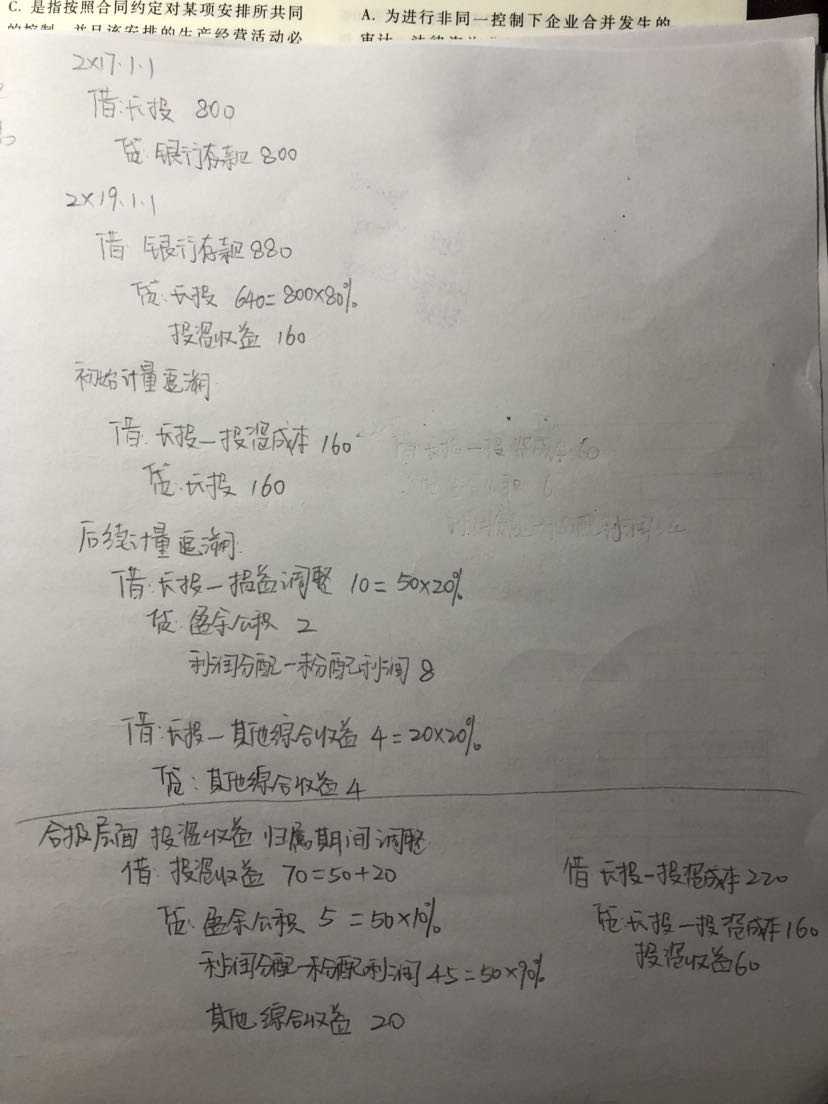 C. 是指按照合同约定对某项安排所共同
的控制，并且该安排的生产经营活动必
A. 为进行非同一控制下企业合并发生的
审计、法律
2×17.1.1
借:长投 800
贷:银行存款 800
2×19.1.1
借 银行存款 880
贷:长投 640=800×80%
投资收益 160
初始计量追溯
借:长投—投资成本 160
贷:长投 160
借 长投—投资成本 60
6
后续计量追溯:
借:长投—损益调整 10=50×20%
贷:盈余公积 2
利润分配—未分配利润 8
借:长投—其他综合收益 4=20×20%
贷:其他综合收益 4
合报层面 投资收益 归属期间调整
借:投资收益 70=50+20
贷:盈余公积 5=50×10%
利润分配—未分配利润 45=50×90%
其他综合收益 20
借 长投—投资成本 220
贷:长投—投资成本 160
投资收益 60